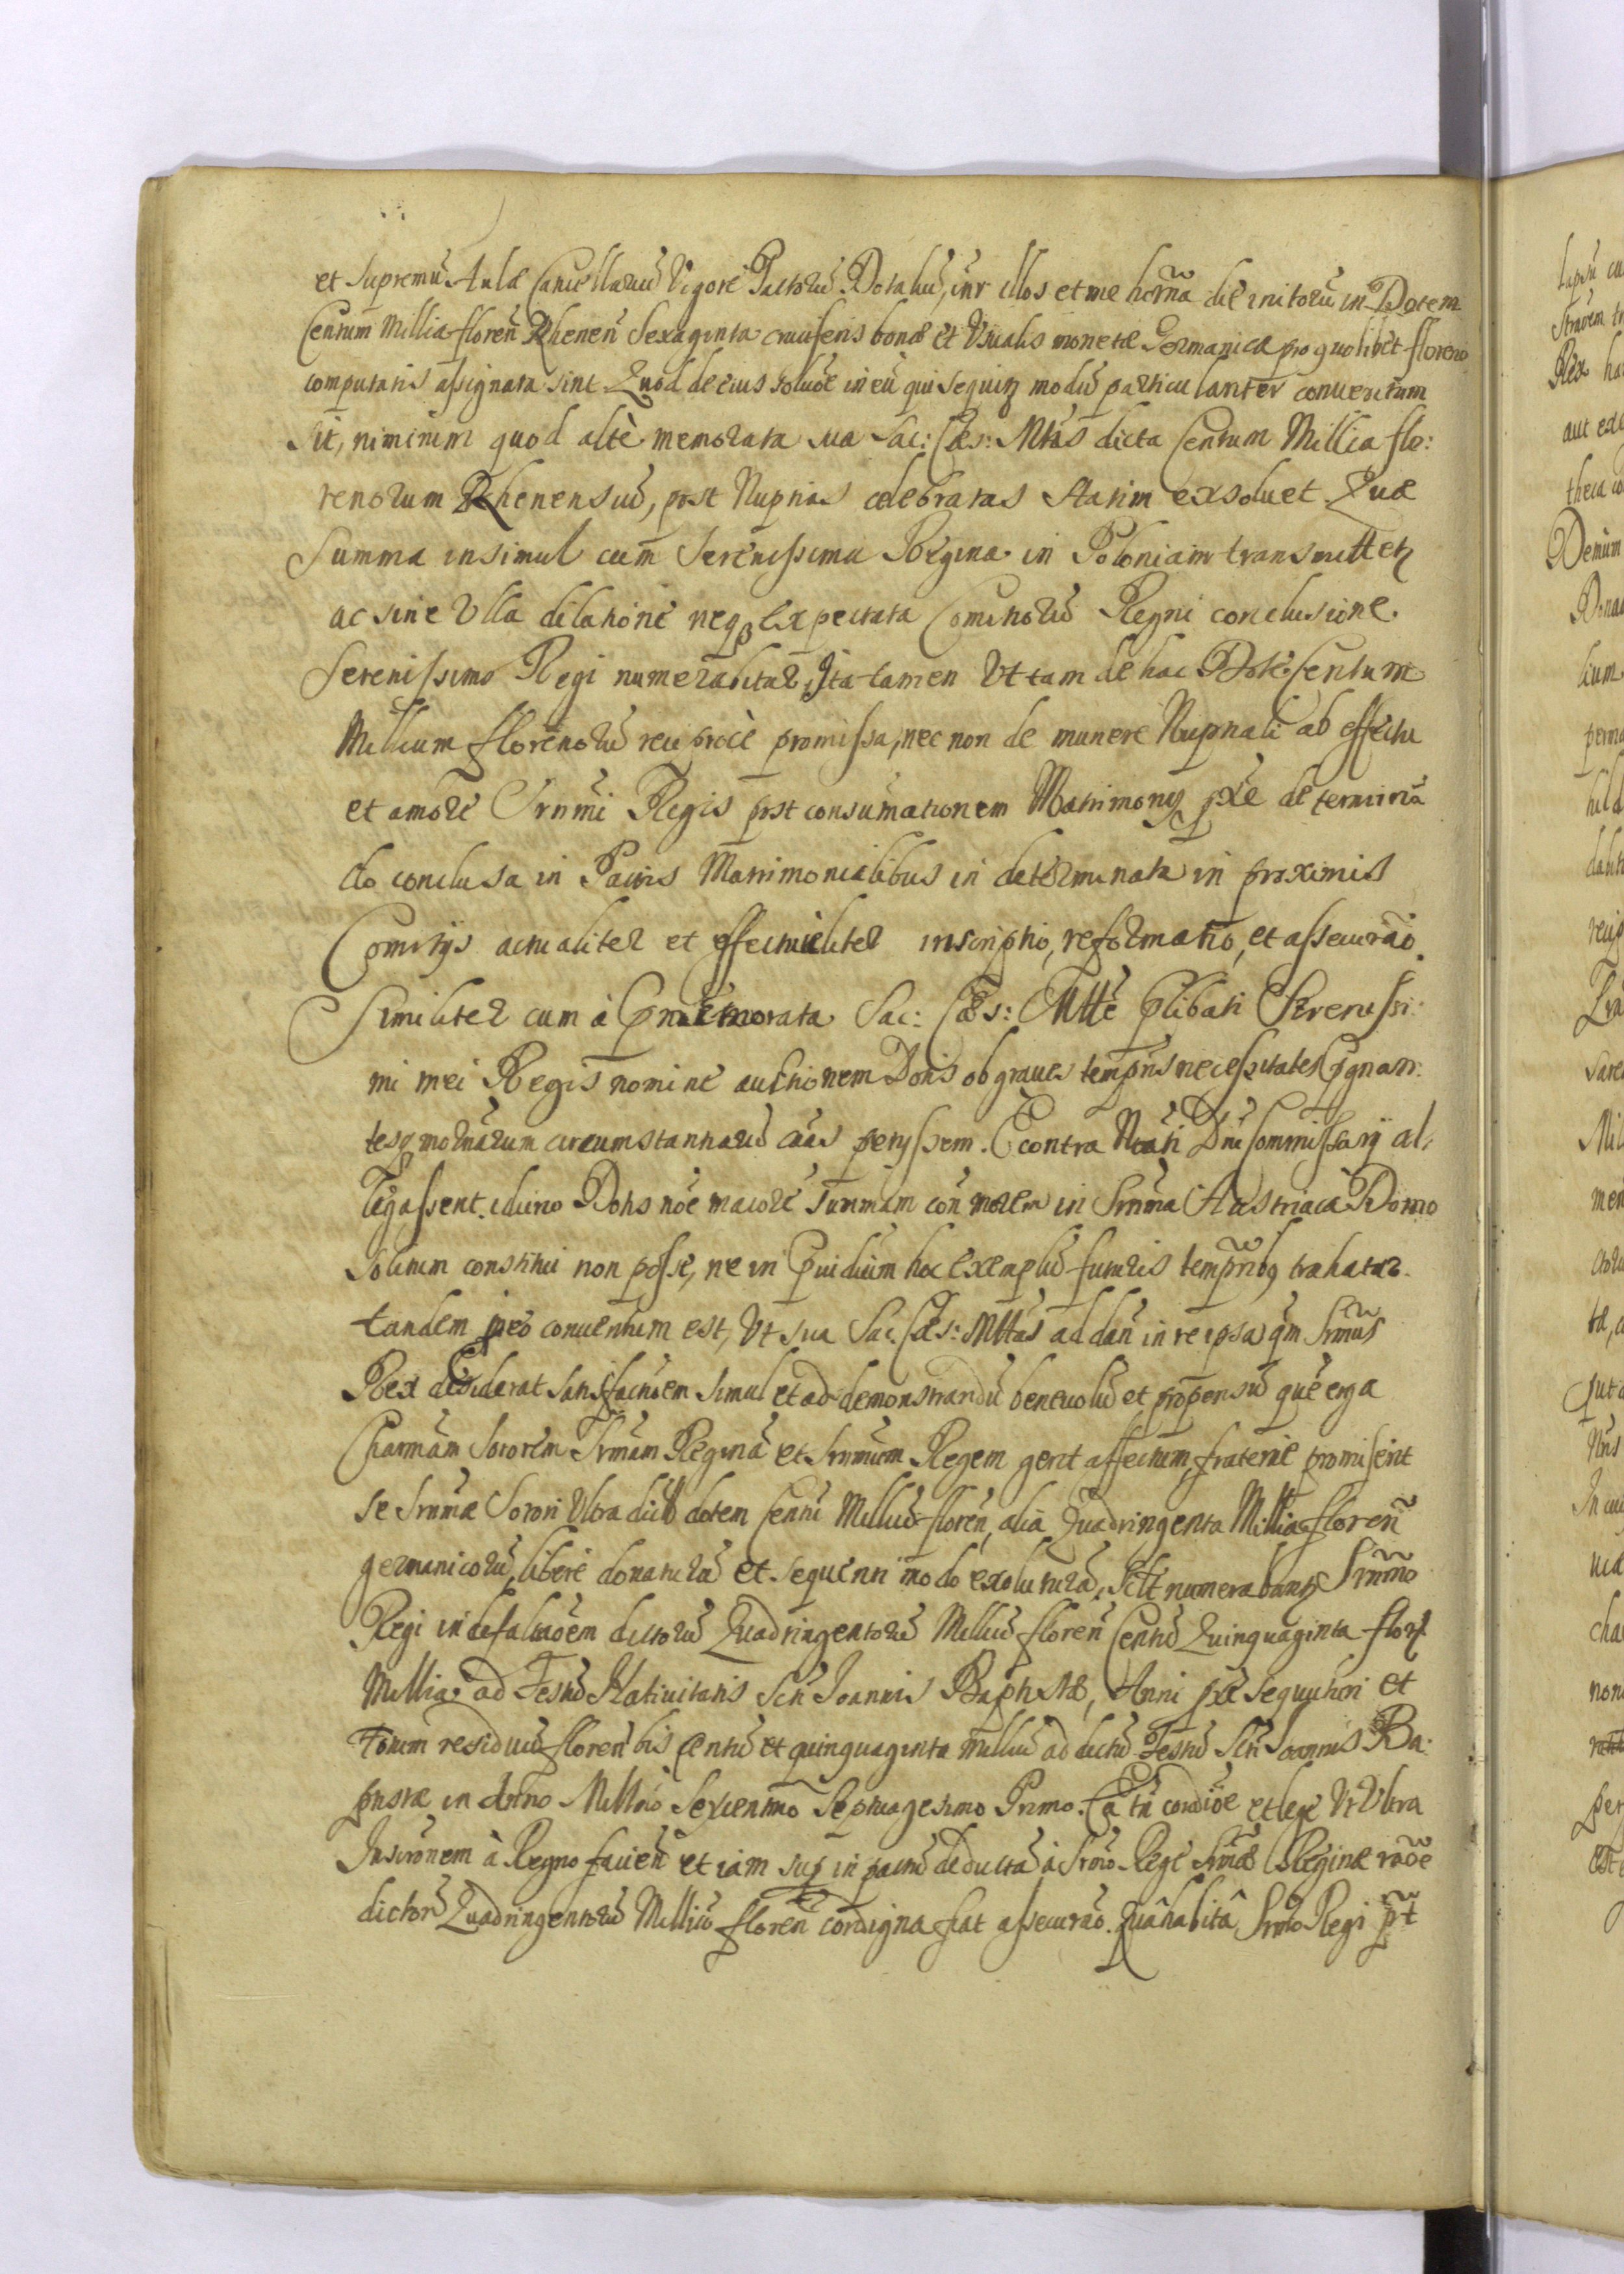 et Supremũ Aulæ Cancellariũ Vigore Pactorũ Dotaliũ, inr illos et me hõrna die initorũ in Dotem
Centum Millia floren̄ Rhenen̄ Sexaginta cruiferis bonæ et Usualis monetæ Germanicæ pro quolibet floreno
computatis assignata sint Quod de eius solũoe in eũ qui sequitꝛ modũ particulariter conuentum
sit, nimirum quod altè memorata sua Sac: Cæs: Mtas dicta Centum Millia flo:
renorum Rhenensiũ, post Nuptias celebratas statim exsoluet Quæ
Summa insimul cum Serenissima Regina in Poloniam transmittetꝛ
ac sine Ulla dilatione neqꝫ expectata Comitiorũ Regni conclusione.
Serenissimo Regi numerabitur, Ita tamen Ut tam de hac Dote Centum
Millium florenorũ reciprocè promissa, nec non de munere Nuptiali ab effectu
et amore Srnmi Regis post consumationem Matrimonij pxe determinã
do conclusa in Pactis Matrimonialibus in determinata in proximis
Comitijs actualiter et effectualiter inscriptio, reformatio, et assecurão.
Similiter cum à memorata Sac: Cæs: Mtte plibati Serenissi:
mi mei Regis nomine auctionem Dotis ob graues tempris necessitates pgnan:
tesqꝫ modernarum circumstantiarũ cãas petijssem. E contra Dni Commissarij al:
legassent. idcirco Dotis nõe maiorẽ summam con̄ morem in Srnma Austriaca Domo
Solitum constitui non posse, ne in Pjudicium hoc exemplũ futuris tempribꝫ trahatur.
tandem in eo conuentum est, Ut sua Sac. Cæs: Mttas ad dan̄ in re ipsa qm Srnũs
Rex desiderat satisfactioem simul et ad demonstrandũ beneuolũ et propensũ quẽ erga
Charmãm Sororem Srmãm Reginã et Srnmum Regem gerit affectum, fraterne promiserit
se Srnmæ Sorori Ultra dictã dotem Centũ Milliũ floren̄, alia Quadringenta Millia floren̄
germanicorũ, libere donaturũ et sequenti modo exoluturũ, Sclt numerabuntꝛ Srnmo
Regi in defalcãoem dictorũ Quadringentorũ Milliũ floren̄ Centũ Quinquaginta flor
Millia ad Festũ Natiuitatis Scti Joannis Baptistæ, Anni pxe sequuturi et
totum residuũ floren̄ bis Centũ et quinquaginta milliũ ad dictũ Festũ Scti Joannis Ba:
ptistæ in Anno Millmo Sexcentmo Septuagesimo Primo. Eâ tñ condiõe et lege Ut Ultra
Inscrõnem à Regno facien̄ et iam sup in pactũ deductã à Srmo Rege Srmæ Reginæ raõe
dictorũ Quadringentorũ Milliũ floren̄ condigna fiat assecurão. Quâ habitâ Srmo Regi pt